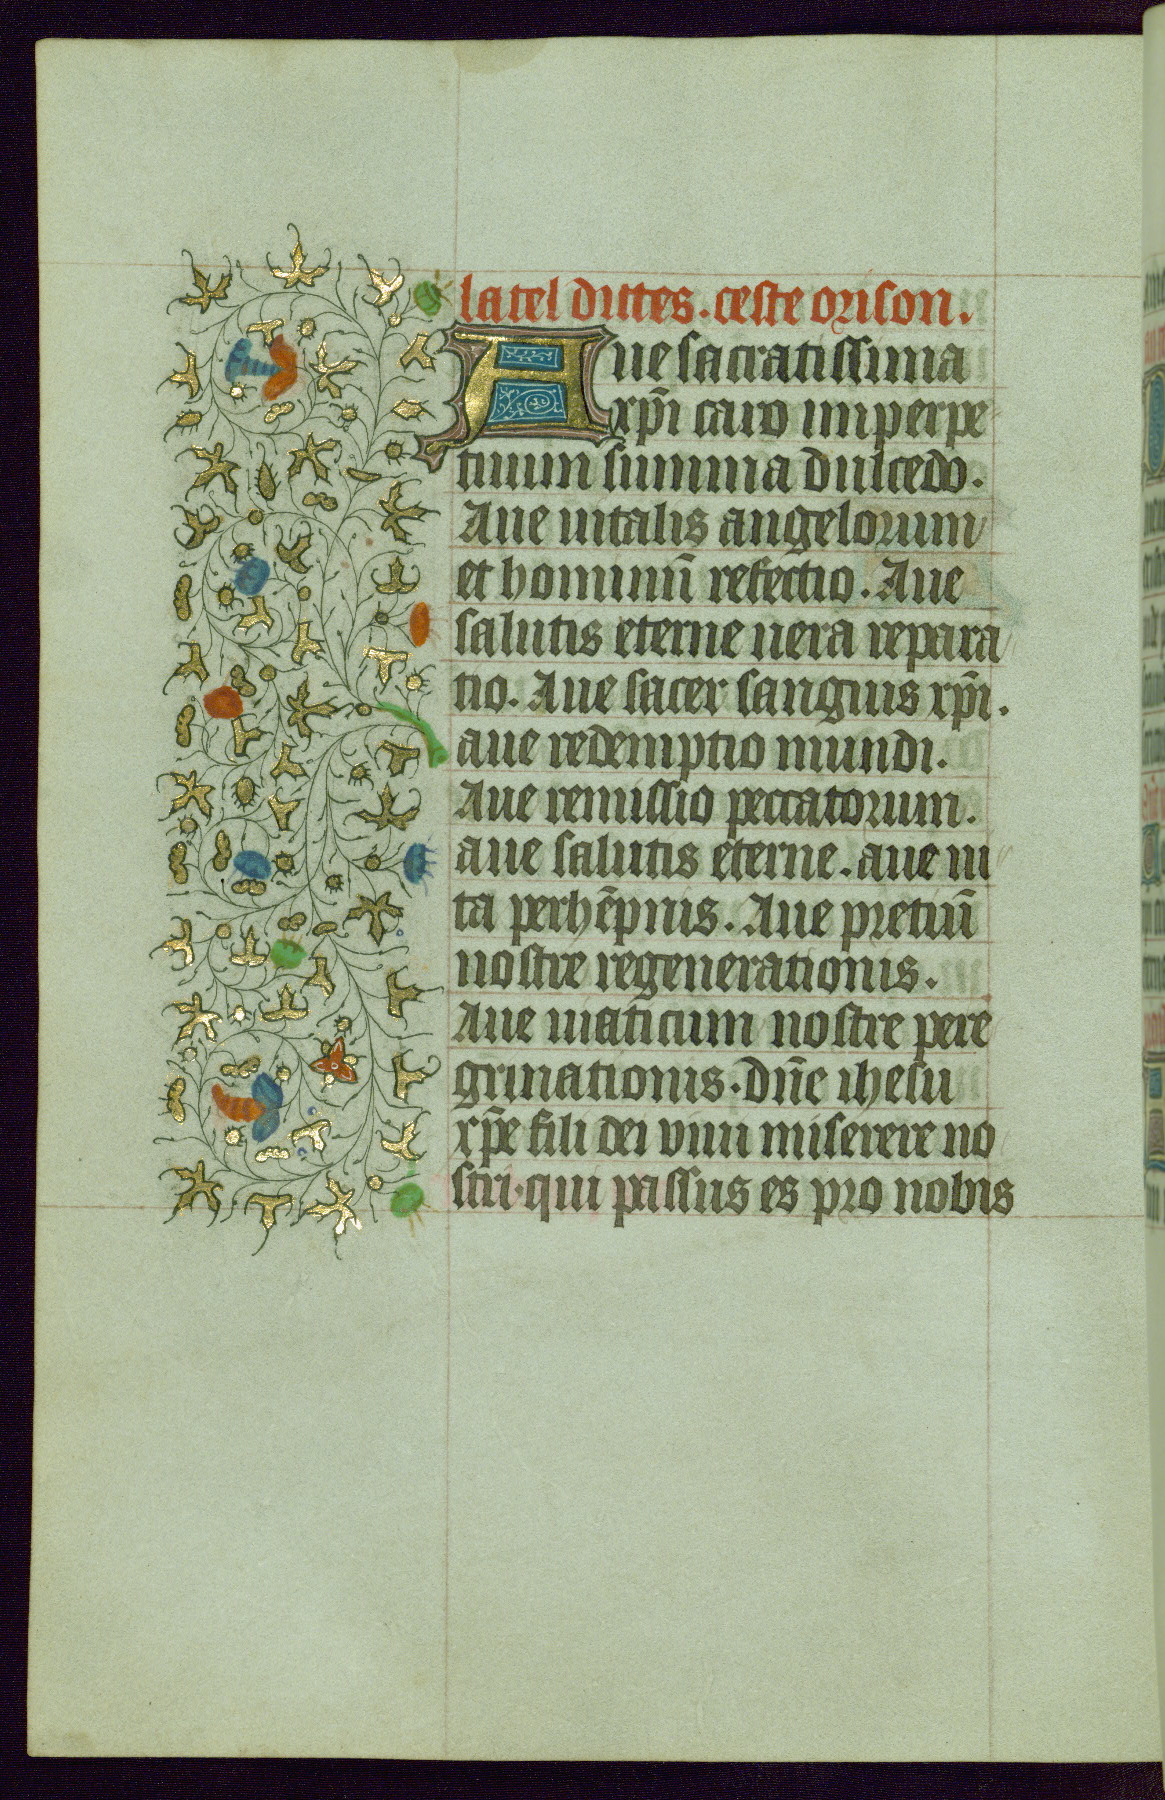 latel dittes. ceste orison.
Aue sacratissima
xp̄i caro imperpe
tuum summa dulcedo.
Aue uitalis angelorum
et hominū refectio. Aue
salutis eterne uera repara
tio. Aue sacer sanguis xp̄i.
aue redemptio mundi.
Aue remissio peccatorum.
aue salutis eterne. aue ui
ta perhēpnis. Aue pretiū
nostre regenerationis.
Aue uiaticum nostre pere
grinationis. dn̄e ihesu
xp̄e fili dei uiui miserere no
stri. qui passus es pro nobis